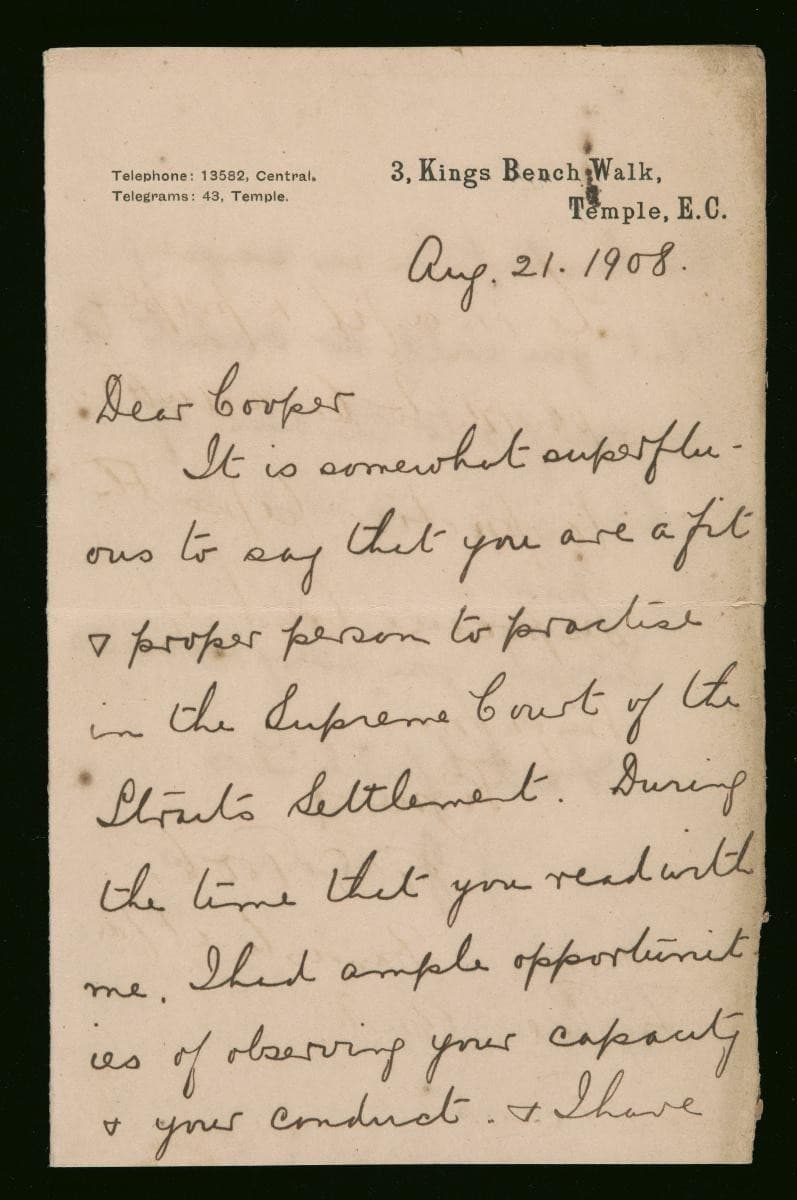 Telephone: 13582, Central.
Telegrams: 43, Temple.
3, Kings Bench Walk,
Temple, E.C.
Aug. 21. 1908.
Dear Cooper
It is somewhat superflu-
ous to say that you are a fit
& proper person to practise
in the Supreme Court of the
Straits Settlement. During
the time that you read with
me, I had ample opportunit-
ies of observing your capacity
& your conduct. & I have